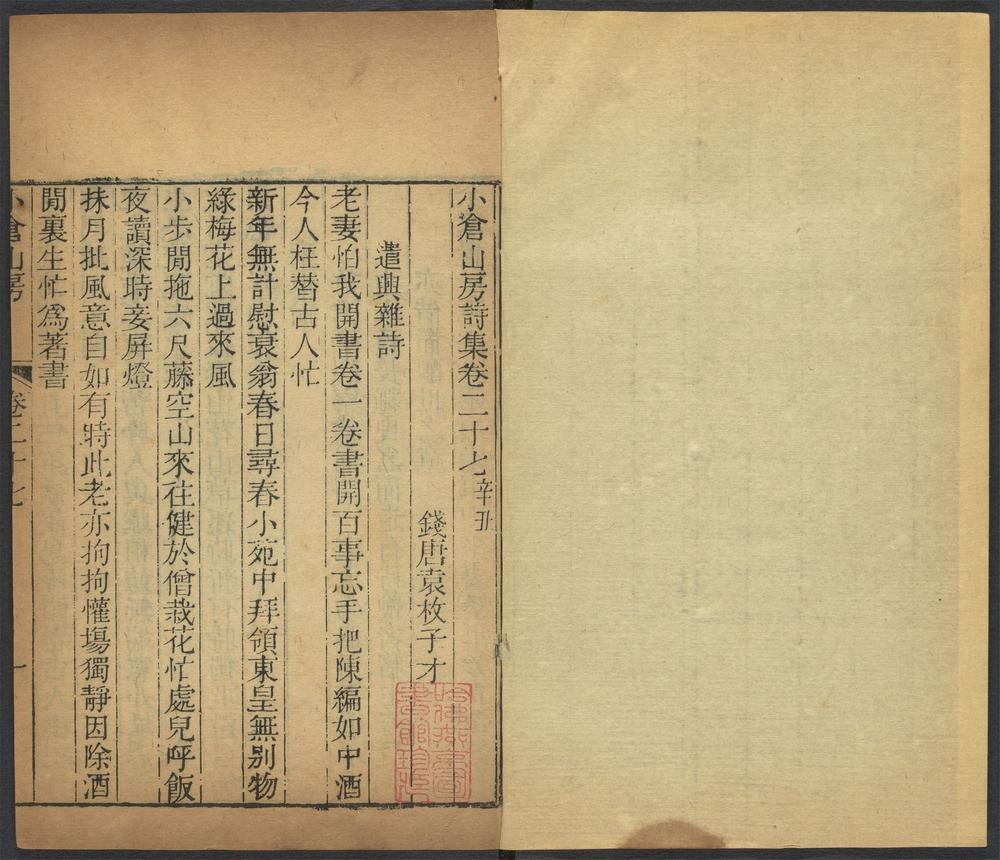 小倉山房詩集卷二十七 辛丑
錢唐袁枚子才
遣興雜詩
老妻怕我開書卷一卷書開百事忘手把陳編如中酒
今人枉替古人忙
新年無計慰衰翁春日尋春小苑中拜領東皇無別物
綠梅花上過來風
小步閒拖六尺藤空山來往健於僧栽花忙處兒呼飯
夜讀深時妾屏燈
抹月批風意自如有時此老亦拘拘懽塲獨靜因除酒
閒裏生忙爲著書
小倉山房 卷二十七 一
哈佛燕京圖
書館珍藏